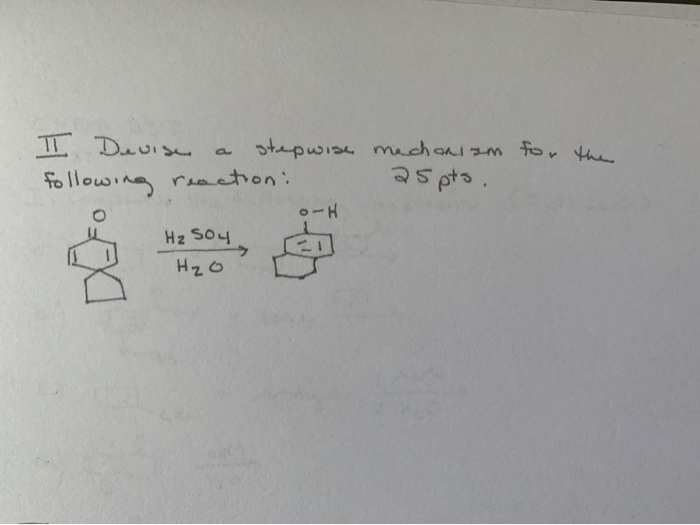 II Devise a stepwise mechanism for the
following reaction: 25 pts.
O
O-H
H2 SO4
H2O